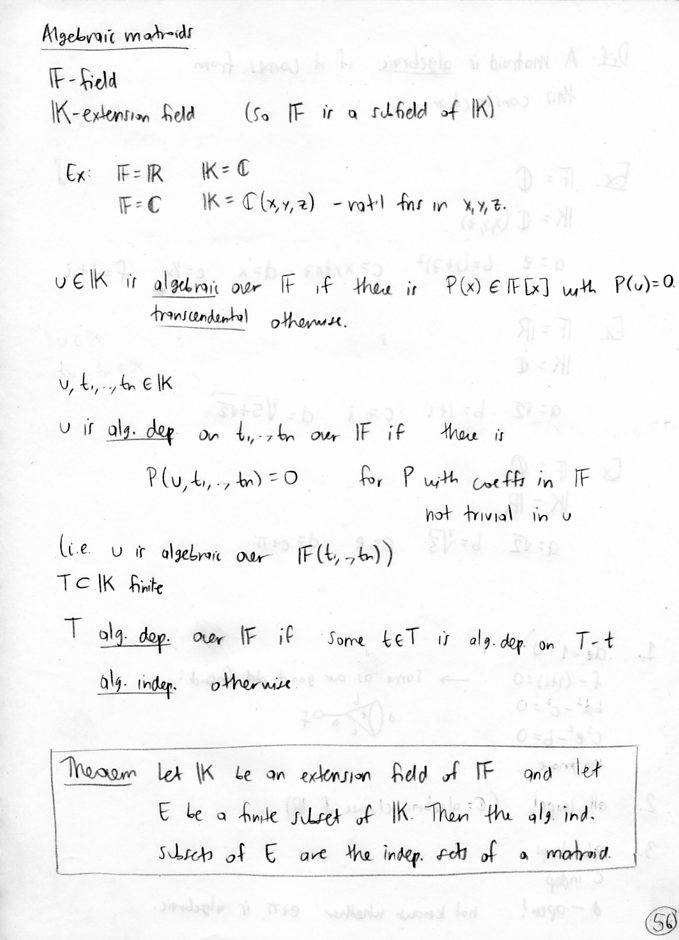 Algebraic matroids
𝔽-field
𝕂-extension field (so 𝔽 is a subfield of 𝕂)
Ex: 𝔽=ℝ 𝕂=ℂ
𝔽=ℂ 𝕂=ℂ(x,y,z) -rat'l fns in x,y,z.
u∈𝕂 is algebraic over 𝔽 if there is P(x)∈𝔽[x] with P(u)=0.
transcendental otherwise.
u, t₁,..,tn ∈ 𝕂
u is alg. dep on t₁,..,tn over 𝔽 if there is
P(u,t₁,..,tn)=0 for P with coeffs in 𝔽
not trivial in u
(i.e. u is algebraic over 𝔽(t₁,..,tn))
T⊂𝕂 finite
T alg. dep. over 𝔽 if some t∈T is alg. dep. on T-t
alg. indep. otherwise
Theorem Let 𝕂 be an extension field of 𝔽 and let
E be a finite subset of 𝕂. Then the alg. ind.
subsets of E are the indep. sets of a matroid.
56